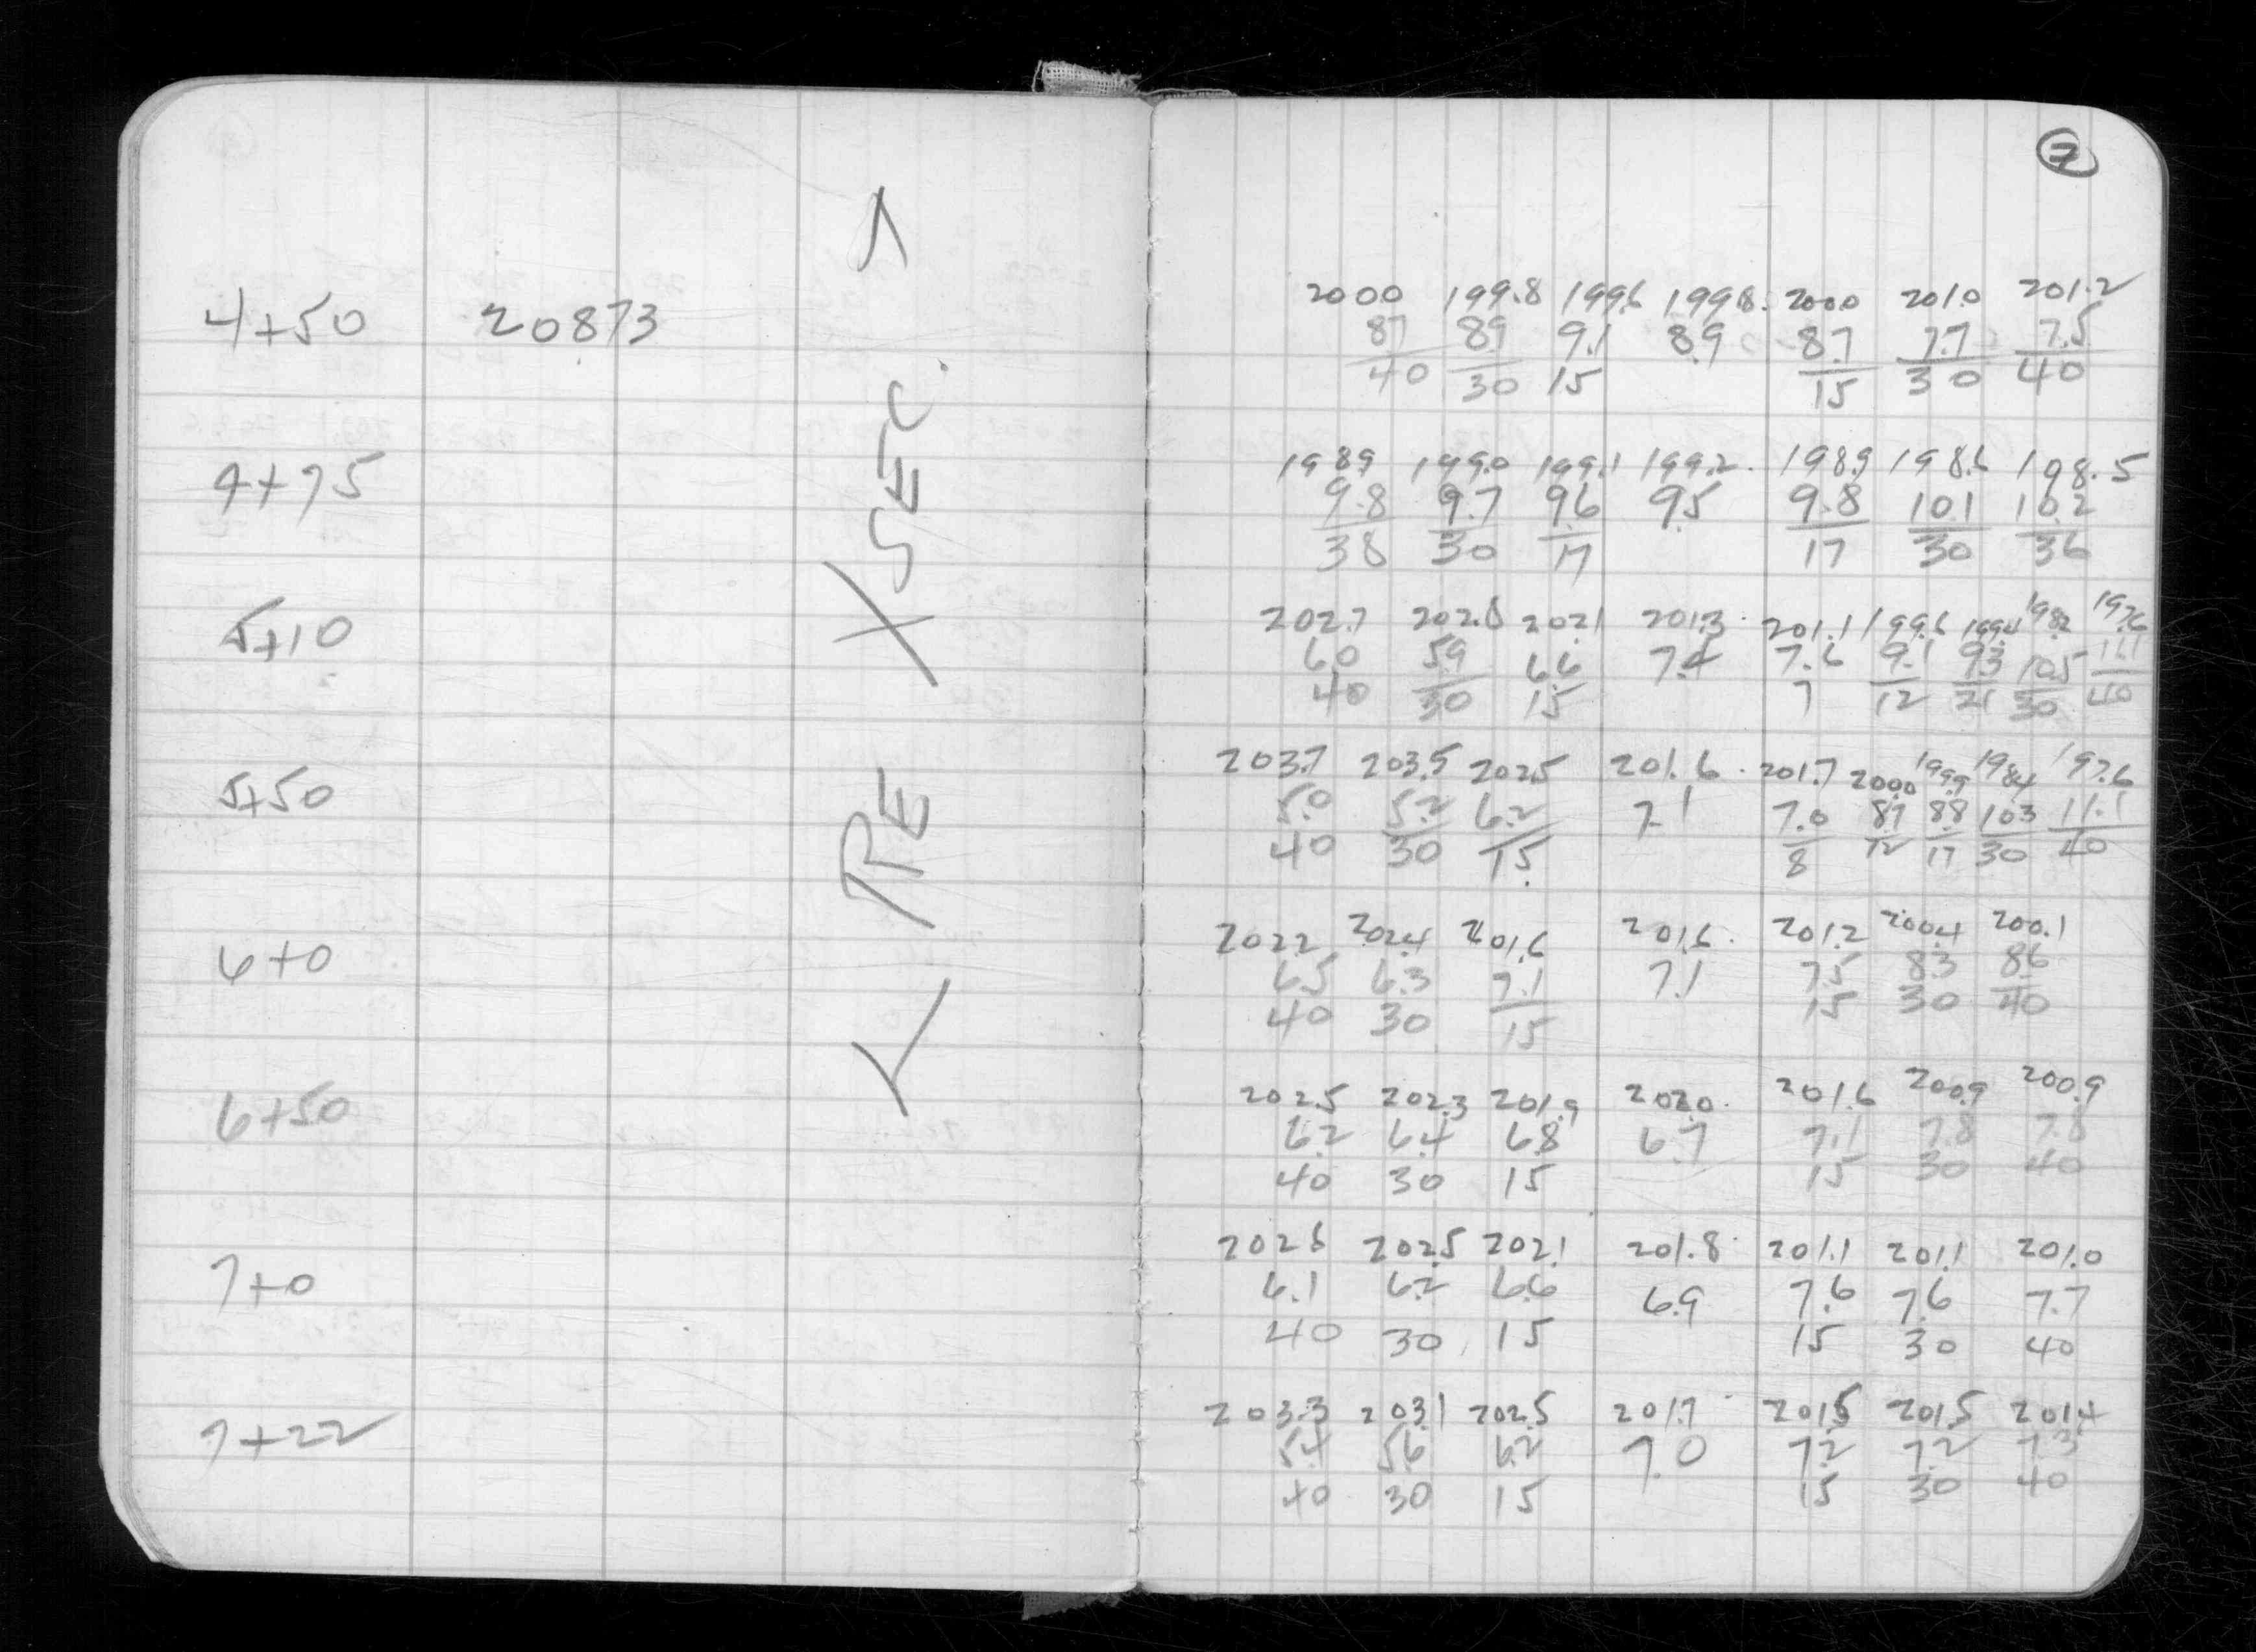 2
4+50 20873
2000 199.8 199.6 199.8 200.0 201.0 201.2
87 89 9.1 8.9 8.7 7.7 7.5
40 30 15 15 30 40
4+75
198.9 199.0 199.1 199.2 198.9 198.6 198.5
9.8 9.7 9.6 9.5 9.8 10.1 10.2
38 30 17 17 30 36
5+10
202.7 202.8 202.1 201.3 201.1 199.6 199.4 198.2 197.6
6.0 5.9 6.6 7.4 7.6 9.1 9.3 10.5 11.1
40 30 15 7 12 21 30 40
5+50
203.7 203.5 202.5 201.6 201.7 200.0 199.9 198.4 197.6
5.0 5.2 6.2 7.1 7.0 8.7 8.8 10.3 11.1
40 30 15 8 12 17 30 40
6+0
202.2 202.4 201.6 201.6 201.2 200.4 200.1
6.5 6.3 7.1 7.1 7.5 8.3 8.6
40 30 15 15 30 40
6+50
202.5 202.3 201.9 202.0 201.6 200.9 200.9
6.2 6.4 6.8 6.7 7.1 7.8 7.8
40 30 15 15 30 40
7+0
202.6 202.5 202.1 201.8 201.1 201.1 201.0
6.1 6.2 6.6 6.9 7.6 7.6 7.7
40 30 15 15 30 40
7+22
203.3 203.1 202.5 201.7 201.5 201.5 201.4
5.4 5.6 6.2 7.0 7.2 7.2 7.3
40 30 15 15 30 40
PRE XSEC.